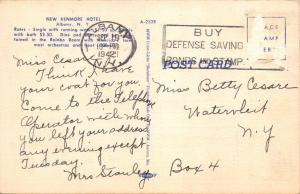 NEW KENMORE HOTEL
Albany, N.Y.
A-2328
Rates - Single with running water
with bath $2.50.
in the Rainbo Room
most orchestras and floor
ALBANY
1942
N.Y.
BUY
DEFENSE SAVING
BONDS AND STAMPS
PLACE
STAMP
HERE
POST CARD
Miss Cesare
I think I have
your coat for you.
Come to the Telephone
Operator with whom
you left your address
any evening except
Tuesday.
Mrs Stanley
Miss Betty Cesare
Watervliet
N.Y
Box 4